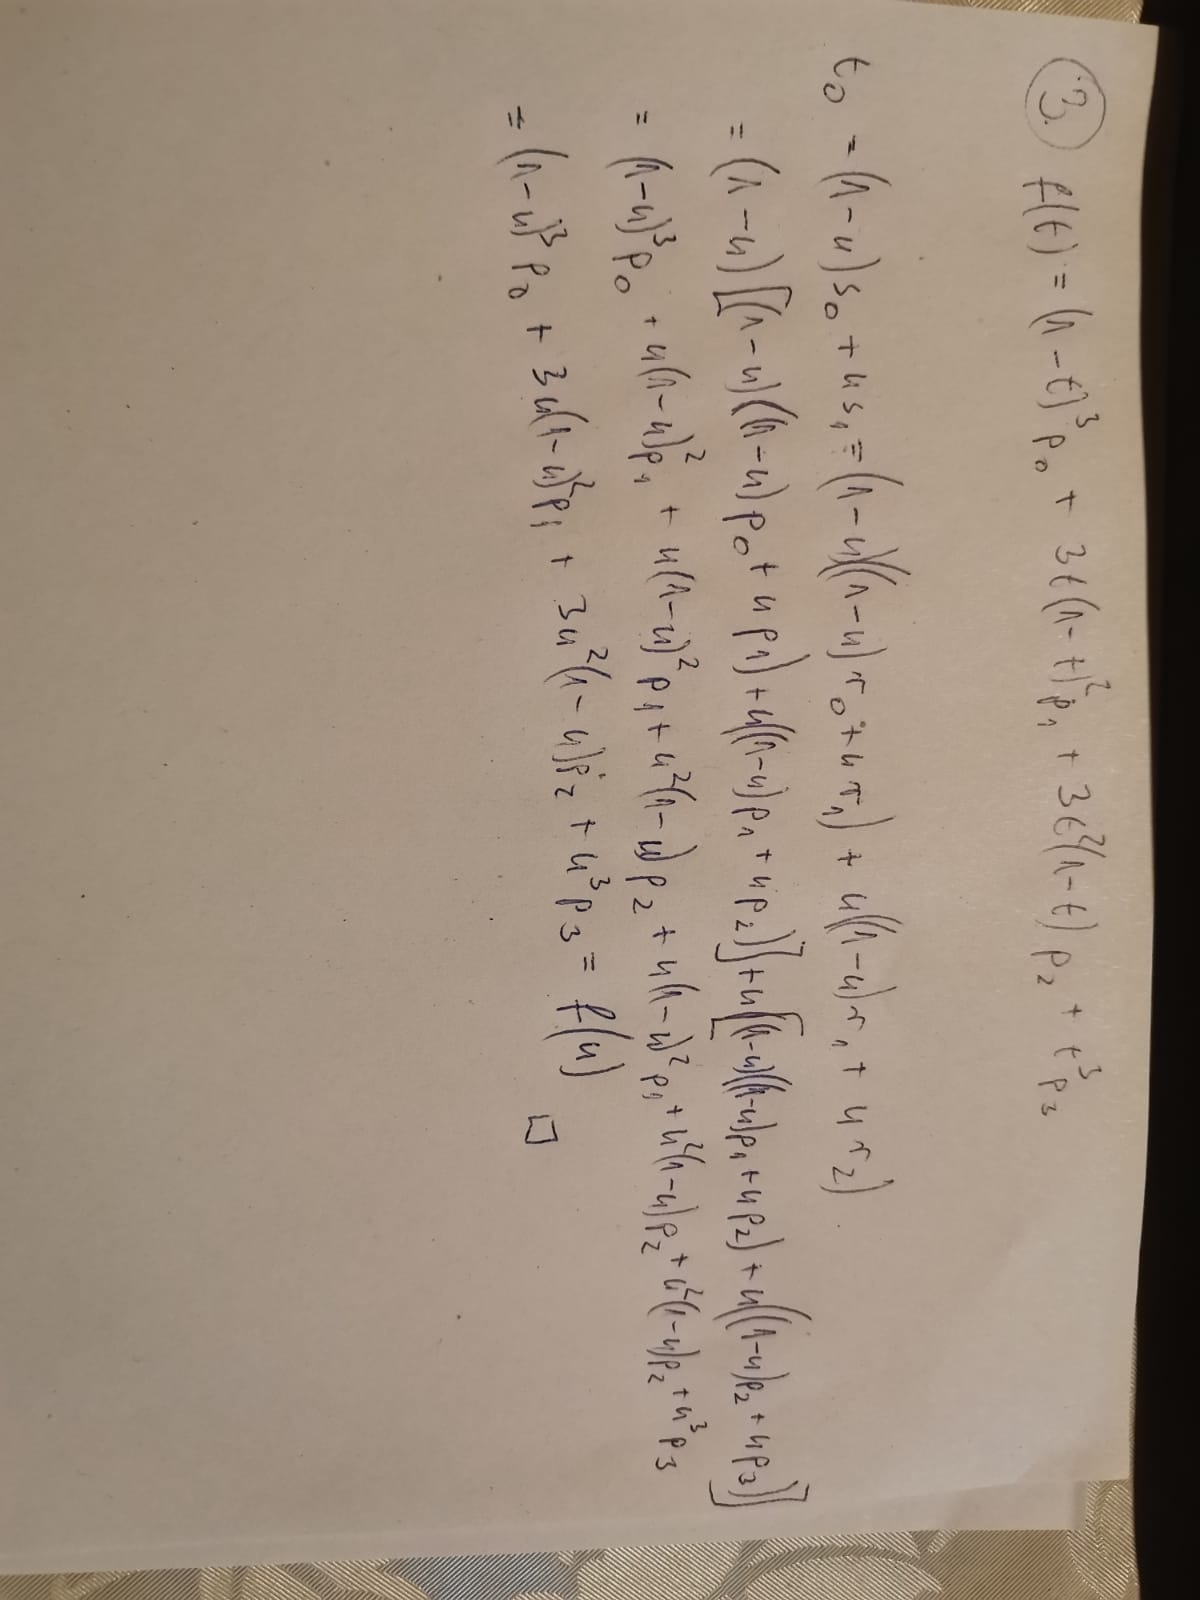 3. f(t) = (1-t)³p₀ + 3t(1-t)²p₁ + 3t²(1-t) p₂ + t³p₃
t₀ = (1-u)s₀ + us₁ = (1-u)((1-u)r₀ + ur₁) + u((1-u)r₁ + ur₂)
= (1-u)[(1-u)((1-u)p₀ + up₁) + u((1-u)p₁ + up₂)] + u[(1-u)((1-u)p₁ + up₂) + u((1-u)p₂ + up₃)]
= (1-u)³p₀ + u(1-u)²p₁ + u(1-u)²p₁ + u²(1-u)p₂ + u(1-u)²p₁ + u²(1-u)p₂ + u²(1-u)p₂ + u³p₃
= (1-u)³p₀ + 3u(1-u)²p₁ + 3u²(1-u)p₂ + u³p₃ = f(u) □